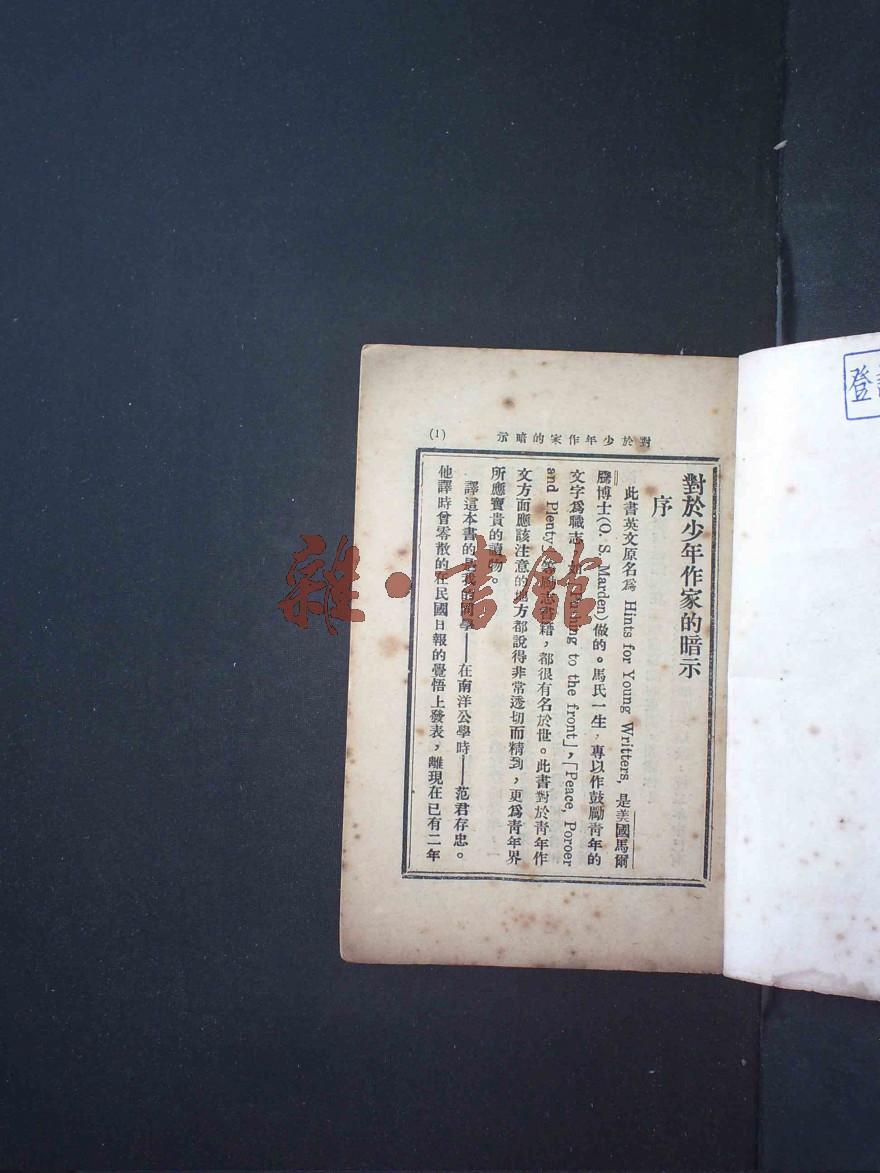 對於少年作家的暗示
(1)
對於少年作家的暗示
序
此書英文原名爲 Hints for Young Writters, 是美國馬爾
騰博士(O. S. Marden)做的。馬氏一生，專以作鼓勵青年的
文字爲職志 to the front」，「Peace, Poroer
and Plenty 書籍，都很有名於世。此書對於青年作
文方面應該注意的地方都說得非常透切而精到，更爲青年界
所應寶貴的讀物。
譯這本書的是我的同學——在南洋公學時——范君存忠。
他譯時曾零散的在民國日報的覺悟上發表，離現在已有二年
雜·書館
登